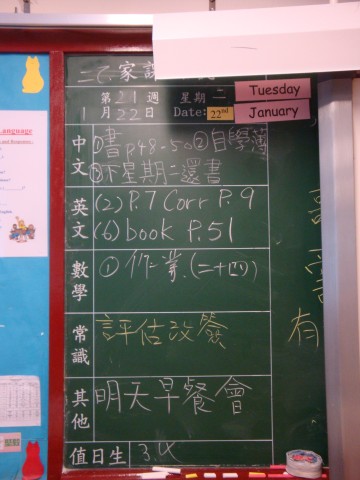 二乙家課
第21週 星期二 Tuesday
1月22日 Date: 22nd January
中文 ①書p48-50②自學簿
③下星期二還書
英文 (2) P.7 Corr P.9
(6) book P.51
數學 ① 作業(二十四)
常識 評估改簽
其他 明天早餐會
值日生 3.
有
Language